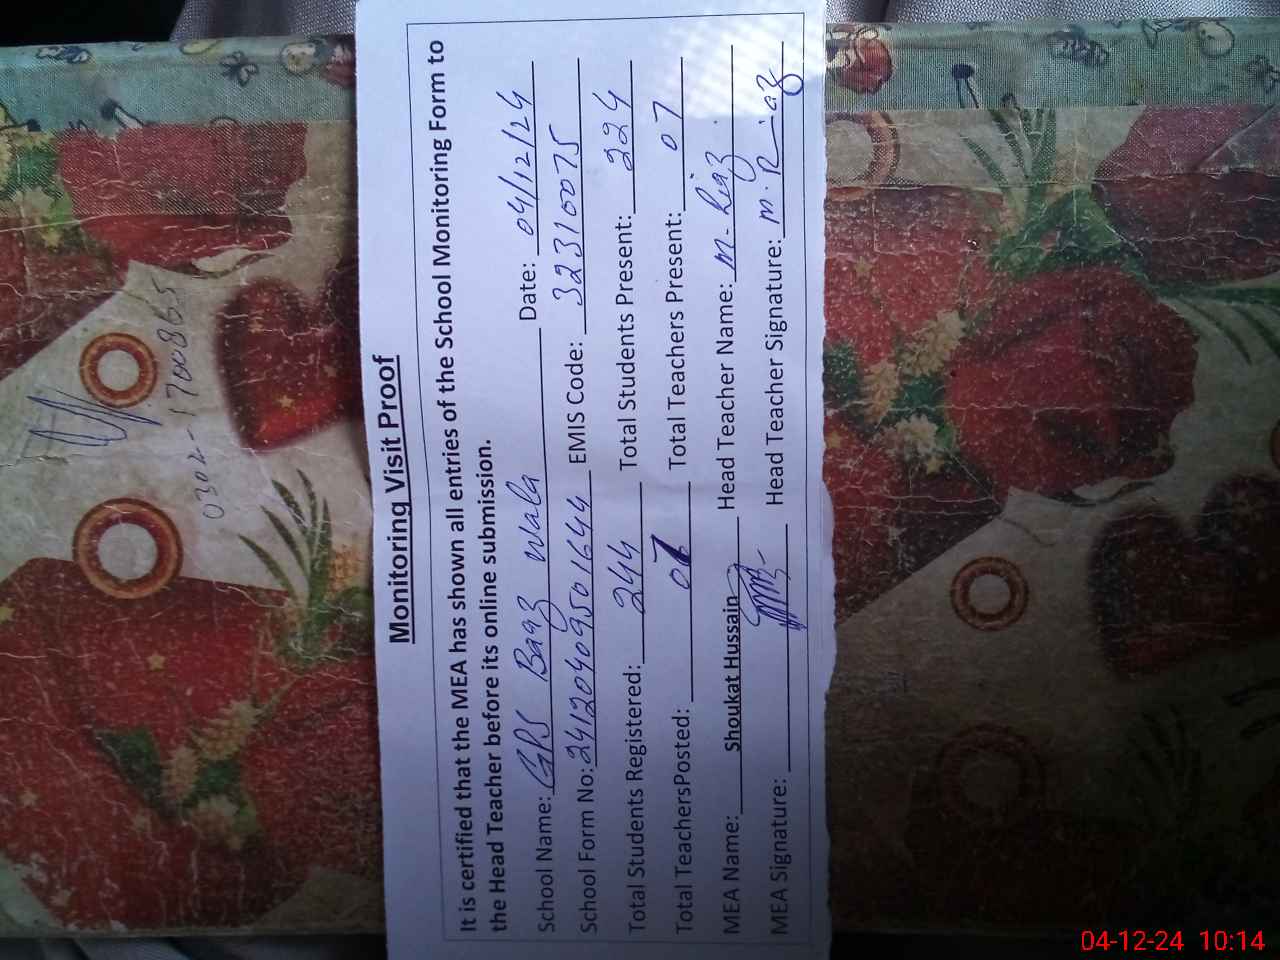 Monitoring Visit Proof
It is certified that the MEA has shown all entries of the School Monitoring Form to
the Head Teacher before its online submission.
School Name: GPS Baaz Wala Date: 04/12/24
School Form No: 24120409501644 EMIS Code: 32310075
Total Students Registered: 244 Total Students Present: 224
Total TeachersPosted: 07 Total Teachers Present: 07
MEA Name: Shoukat Hussain Head Teacher Name: M. Riaz
MEA Signature: Head Teacher Signature: M. Riaz
0302-1700865
04-12-24 10:14